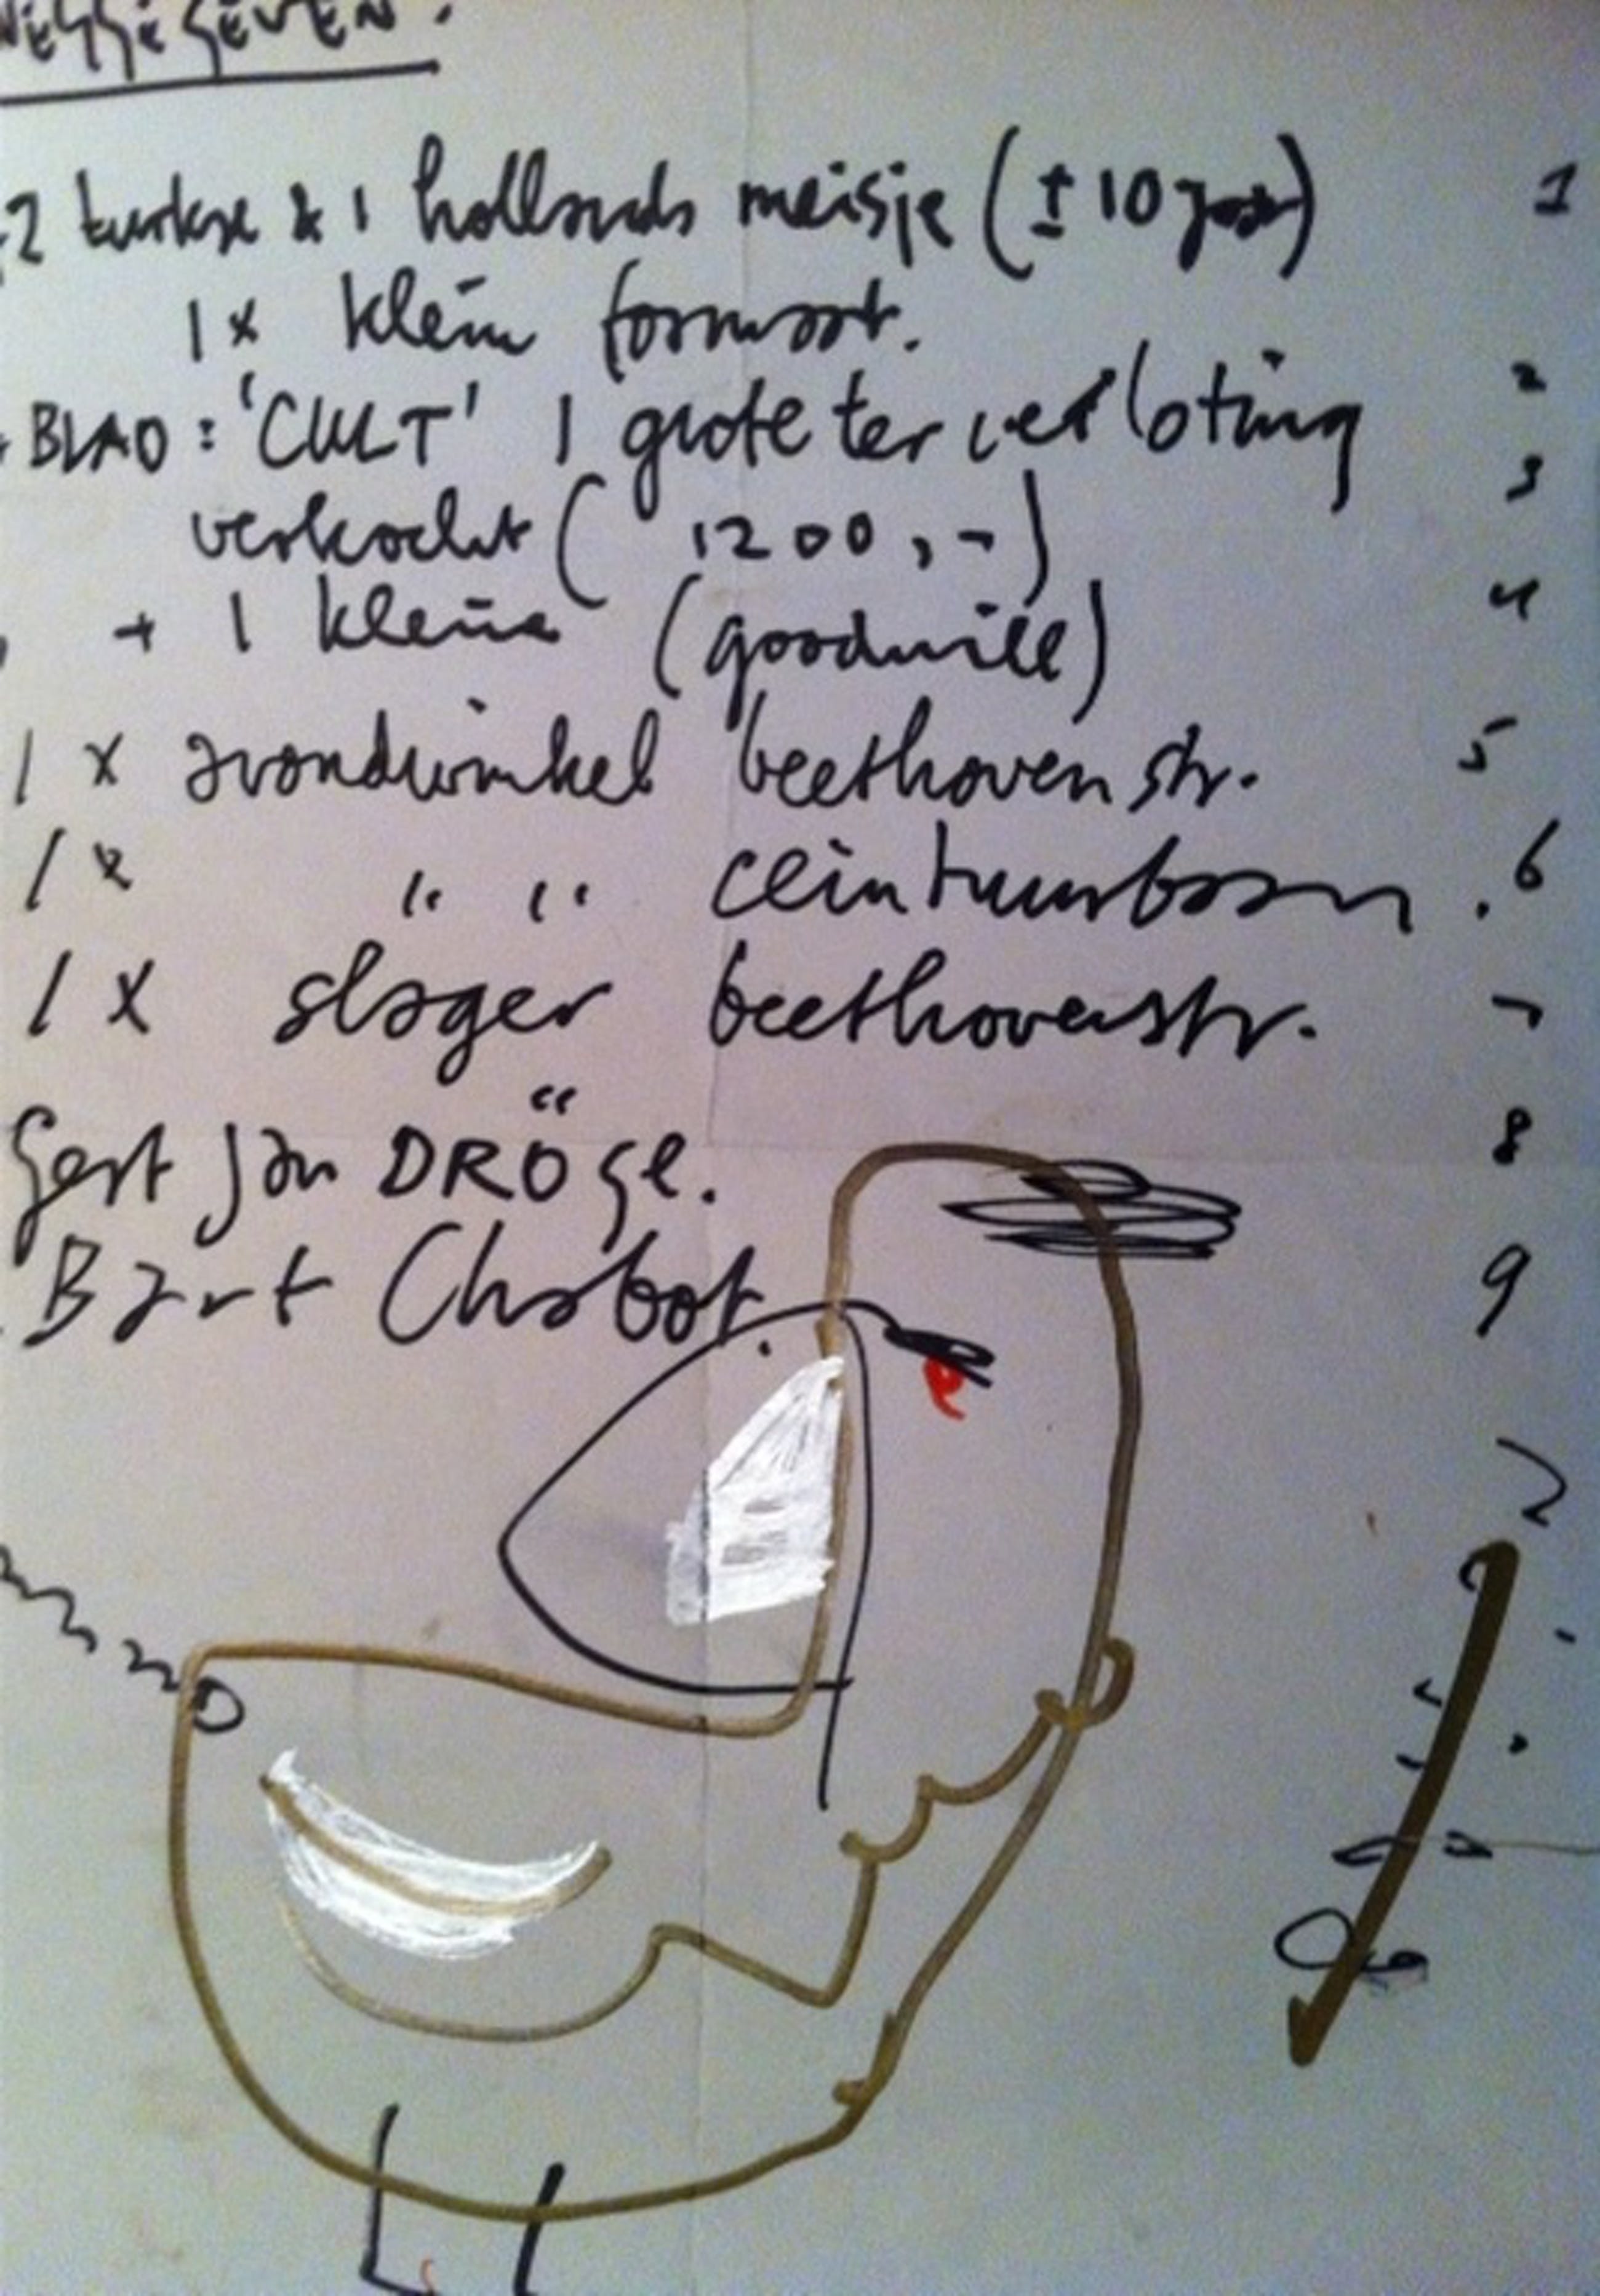 WEGGEGEVEN.
2 turkse & 1 hollands meisje (± 10 jaar) 1
1x klein formaat.
BLAD: 'CULT' 1 grote ter verloting 2
verkocht ( 1200,-) 3
+ 1 kleine (goodwill) 4
1 x avondwinkel beethovenstr. 5
1x " " ceintuurbaan. 6
1 x slager beethovenstr. 7
Gert Jan DRÖGE. 8
Bart Chabot. 9